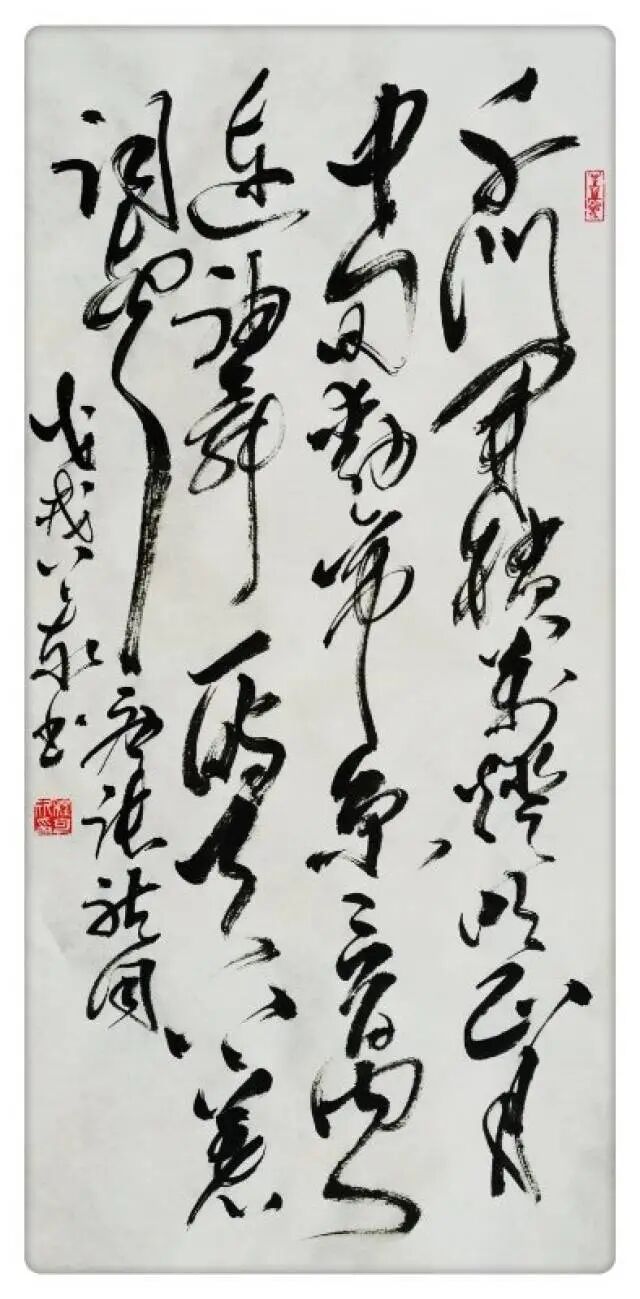 千门开锁万灯明正月
中旬动帝京三百内人
连袖舞一时天上著
词声 唐张祜
戊戌书